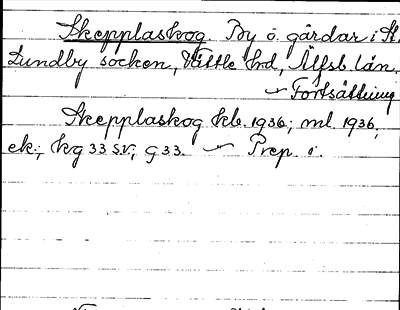 Skepplaskog. By o. gårdar i St.
Lundby socken, Vättle hd, Älfsb. län.
— Fortsättning
Skepplaskog kb. 1936; ml. 1936,
ek.; kg 33 SV; G 33. — Prep. i.